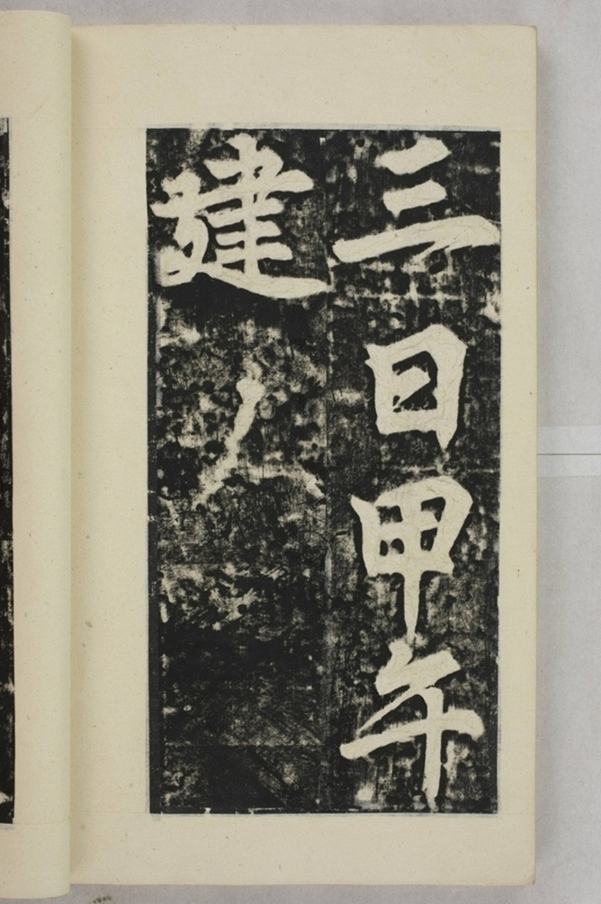 三日甲午
建